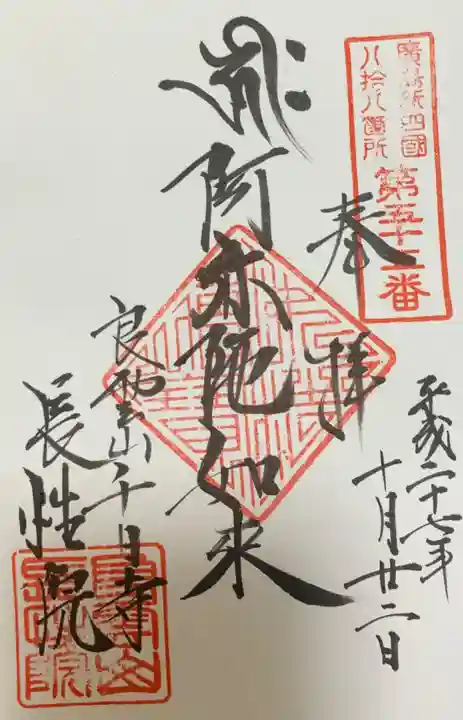 廣島新四國
八拾八箇所
第五十三番
奉拝
平成二十七年
十月廿二日
阿弥陀如来
良雲山十日寺
長性院